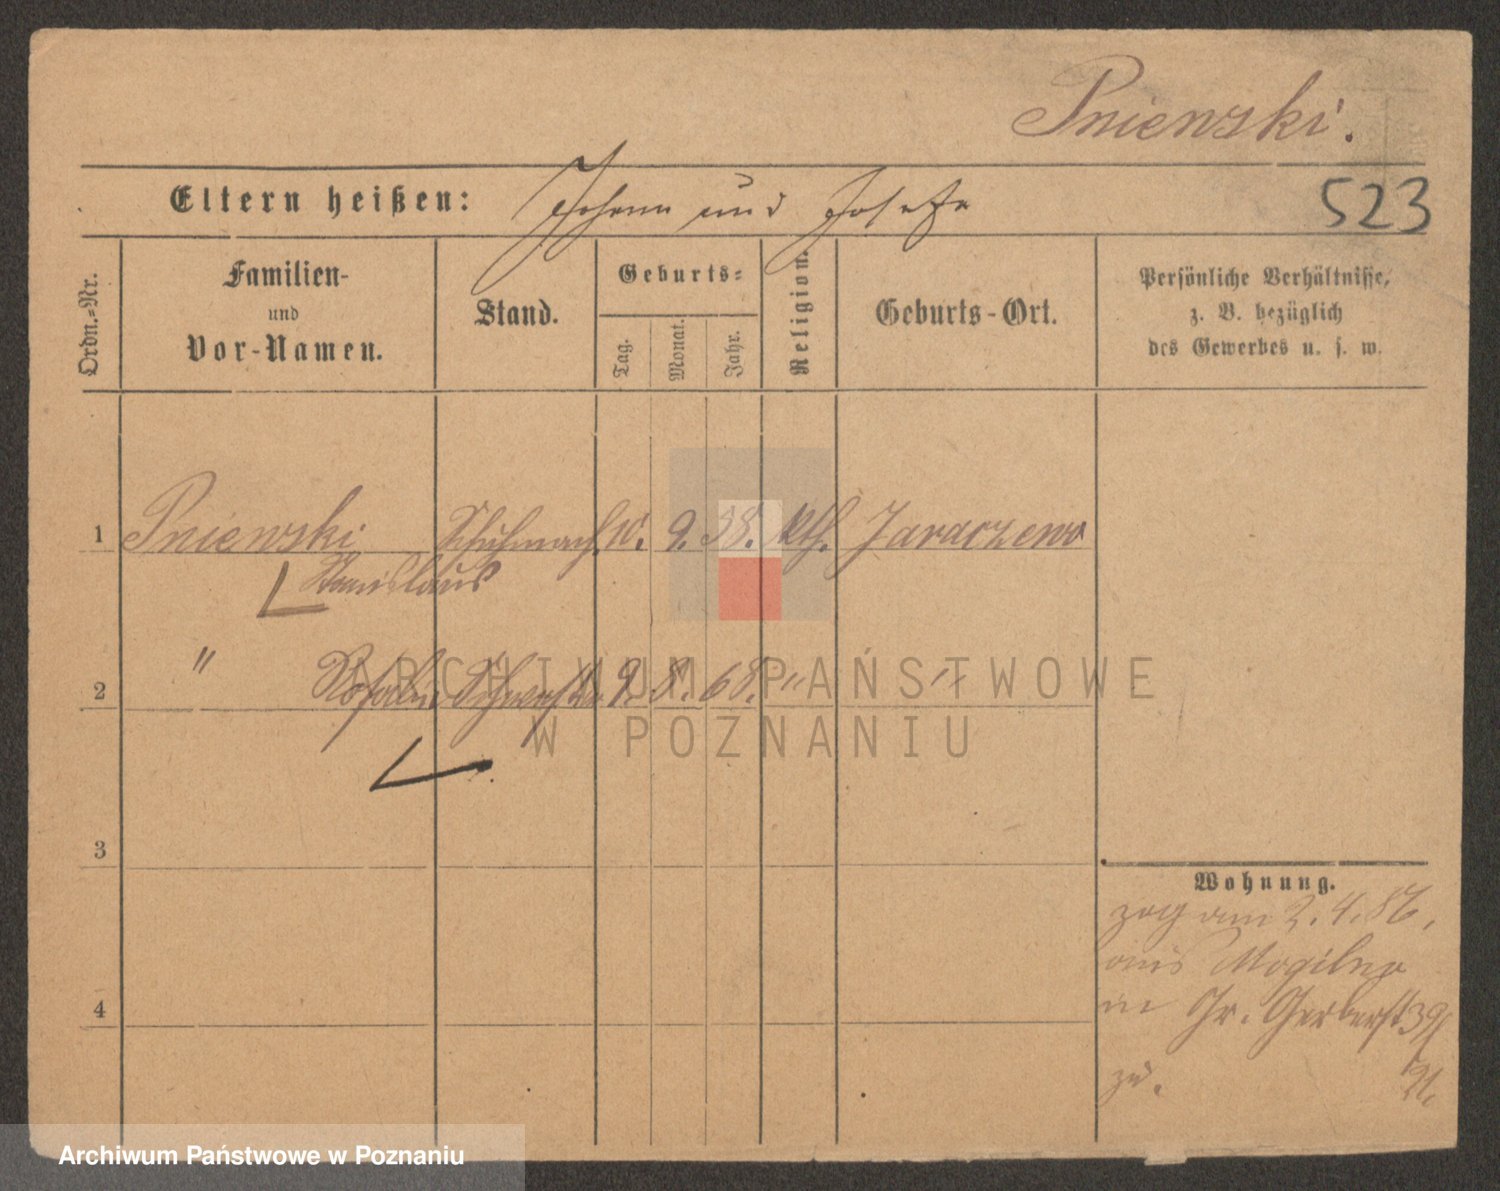 Pniewski.
Eltern heißen: Johann und Josefa
523
Ordn.-Nr.
Familien-
und
Vor-Namen.
Stand.
Geburts-
Tag.
Monat.
Jahr.
Religion.
Geburts-Ort.
Persönliche Verhältnisse,
z. B. bezüglich
des Gewerbes u. s. w.
1 Pniewski Schuhmach. 9. 38. kth. Jaraczewo
Stanislaus
2 " Rosalie Schwester 9. 8. 68. " "
ARCHIWUM PAŃSTWOWE
W POZNANIU
3
Wohnung.
zog am 2. 4. 86.
aus Mogilno
4
in Gr. Gerberst 39/
zu. 21.
Archiwum Państwowe w Poznaniu